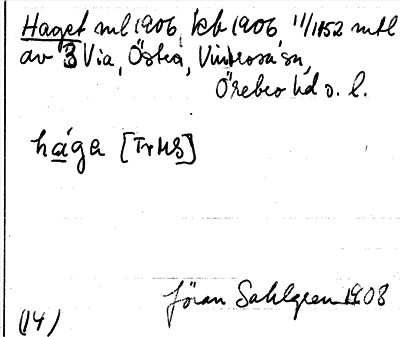 Haget ml 1906, kb 1906, 11/1152 mtl
av 3 Via, Östra, Vintrosa sn,
Örebro hd o. l.
hága [TrHS]
Jöran Sahlgren 1908
(14)